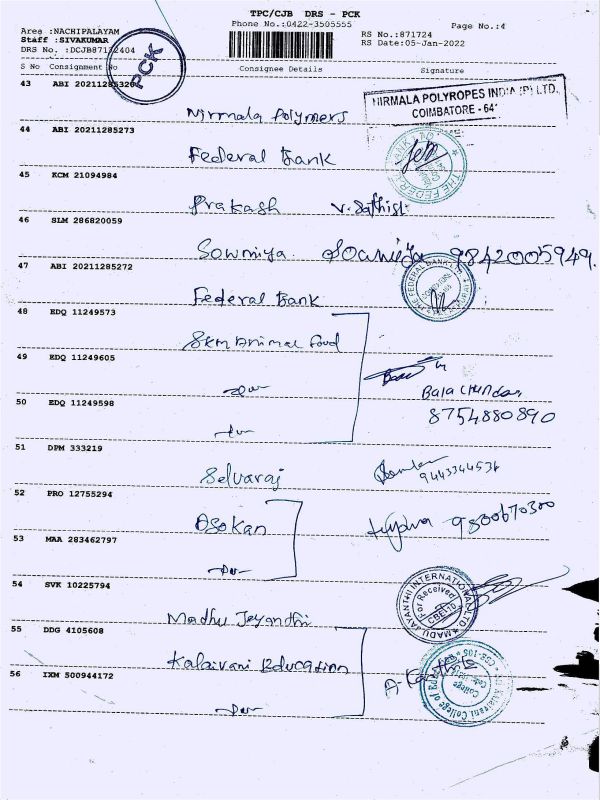 TPC/CJB DRS - PCK
Area :NACHIPALAYAM Phone No.:0422-3505555 Page No.:4
Staff :SIVAKUMAR RS No.:871724
DRS No. :DCJB87172404 RS Date:05-Jan-2022
PCK
S No Consignment No Consignee Details Signature
43 ABI 20211285326
Nirmala Polymers NIRMALA POLYROPES INDIA (P) LTD.
COIMBATORE - 641
44 ABI 20211285273
Federal Bank THE FEDERAL
45 KCM 21094984
Prakash V. Sathish
46 SLM 286820059
Sowmiya Sowmiya 9842005949.
47 ABI 20211285272
Federal Bank THE FEDERAL BANK LTD.
48 EDQ 11249573
SKM Animal Food
49 EDQ 11249605
Bala Chandar
50 EDQ 11249598 8754880890
51 DPM 333219
Selvaraj 9443344536
52 PRO 12755294
Asokan 9800670300
53 MAA 283462797
54 SVK 10225794
Madhu Jeyanthi MADU JAYANTHI INTERNATIONAL LTD
For Received
CBE-110
55 DDG 4105608
Kalaivani Education A. Karthik
56 IXM 500944172
Kalaivani College of